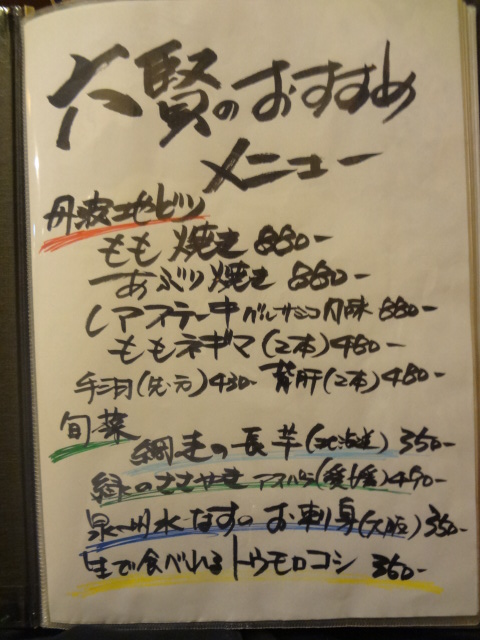 六賢のおすすめ
メニュー
丹波地どり
もも焼き 880-
あぶり焼き 880-
レアステーキ バルサミコ風味 880-
ももネギマ(2本)480-
手羽(先・元)430- 背肝(2本)480-
旬菜
網走の長芋(北海道)350-
緑のささやき アスパラ(愛媛)490-
泉州水なすのお刺身(大阪)350-
生で食べれるトウモロコシ 360-